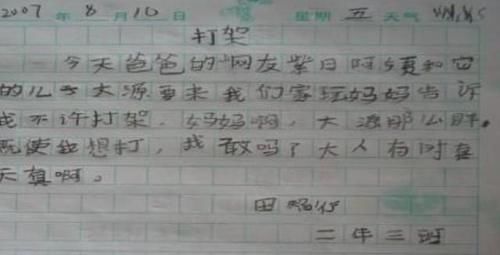 2007年8月10日 星期五天气
打架
今天爸爸的网友紫日阿须和它
的儿子大源要来我们家玩妈妈告诉
我不许打架.妈妈啊,大源那么胖.
既使我想打,我敢吗?大人有时真
天真啊。
田
二年三班